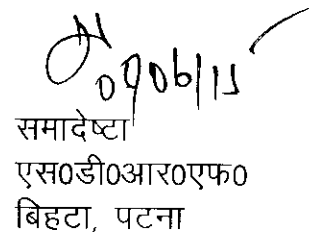 09/06/15
समादेष्टा
एस0डी0आर0एफ0
बिहटा, पटना